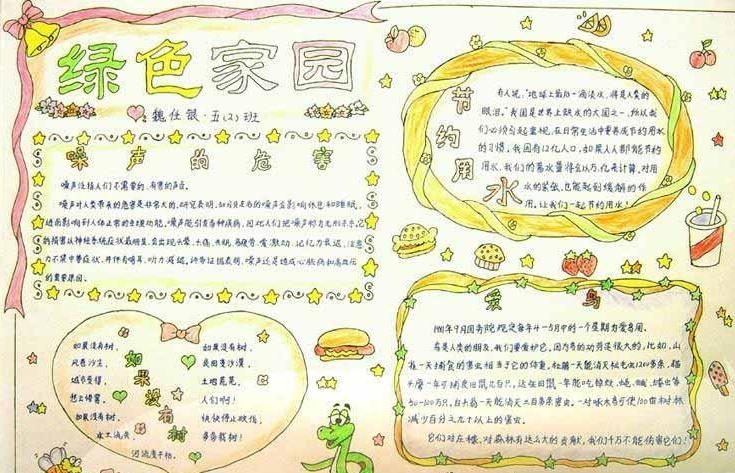 绿色家园
魏仕银·五(2)班
噪声的危害
噪声是指人们不需要的、有害的声音。
噪声对人类带来的危害是非常大的,研究表明,
进而影响到人体正常的生理功能。噪声能引起各种疾病,因此人们把噪声称为无形杀手,它
的损害以神经系统症状最明显,会出现头晕、头痛、失眠、易疲劳、爱激动、记忆力衰退、注意
力不集中等症状,并伴有耳鸣、听力减退。诗等证据表明,噪声还是造成心脏病和高血压
的重要原因。
节约用水
有人说:“地球上最后一滴淡水,将是人类的
眼泪。”我国是世界上缺水的大国之一,所以我
们必须引起重视,在日常生活中要养成节约用水
的习惯。我国有12亿人口,如果人人都能节约
用水,我们的蓄水量将会以万亿来计算,对用
水的紧张,也能起到缓解的作
用,让我们一起节约用水!
如果没有树
如果没有树,
风卷沙尘,
城市受侵,
想上修雾。
如果没有树,
水土流失,
河流度干枯。
如果没有树,
良田变沙漠,
土地荒芜。
人们啊!
快快停止砍伐,
多多栽树!
爱鸟
1981年9月国务院规定每年4—5月中的一个星期为爱鸟周。
鸟是人类的朋友,我们要爱护它,因为鸟的功劳是很大的,比如,山
雀一天捕食的害虫相当于它的体重,杜鹃一天能消灭松毛虫1200多条,猫
头鹰一年可捕食田鼠几百只,
减少百分之九十以上的害虫。
它们对庄稼、对森林有这么大的贡献,我们千万不能伤害它们!